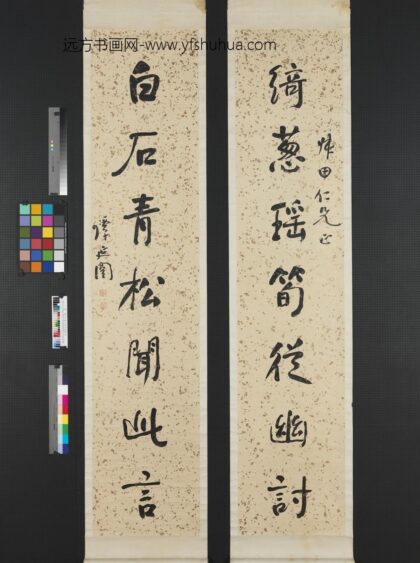 远方书画网-www.yfshuhua.com
綺葱瑶筍從幽討
歸田仁兄正
白石青松聞此言
譚延闓